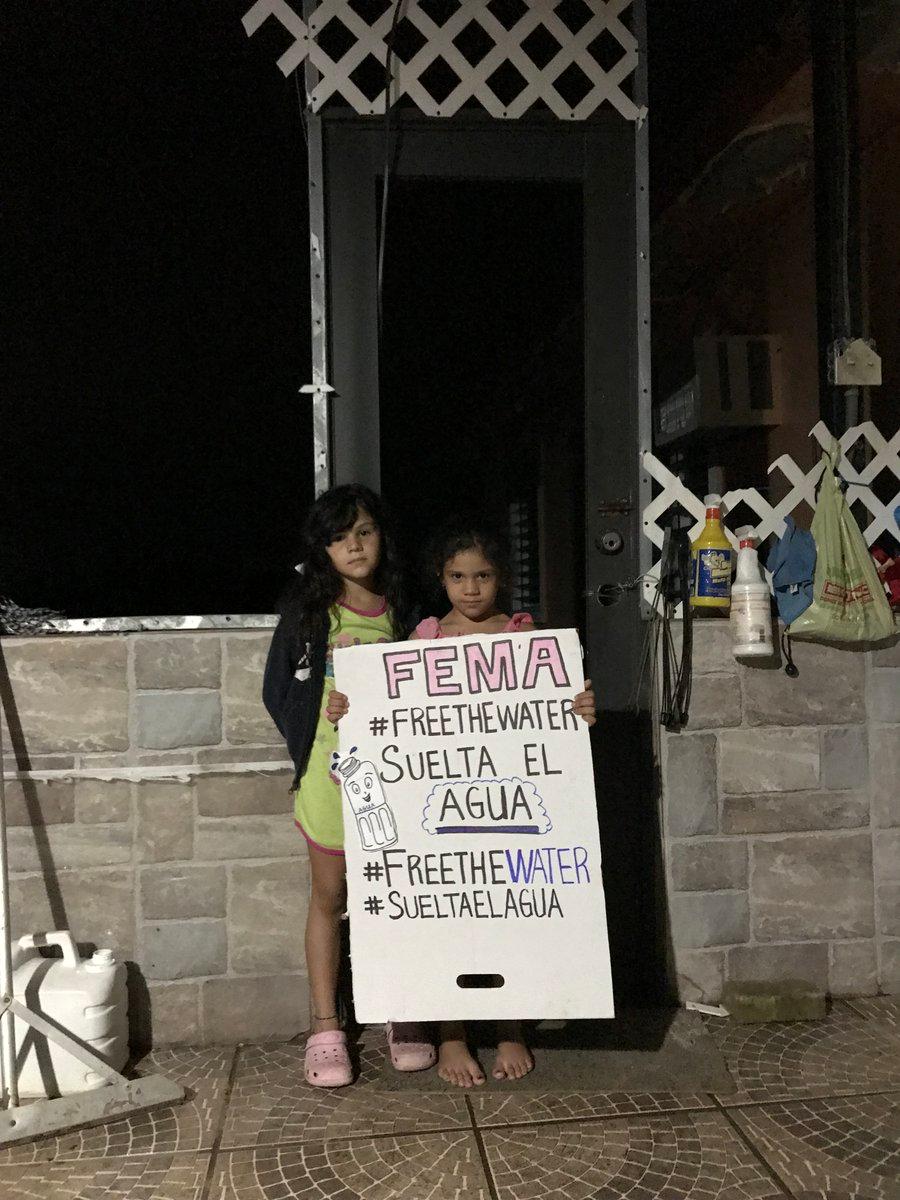 FEMA
#FREETHEWATER
SUELTA EL
AGUA
AGUA
#FREETHEWATER
#SUELTAELAGUA